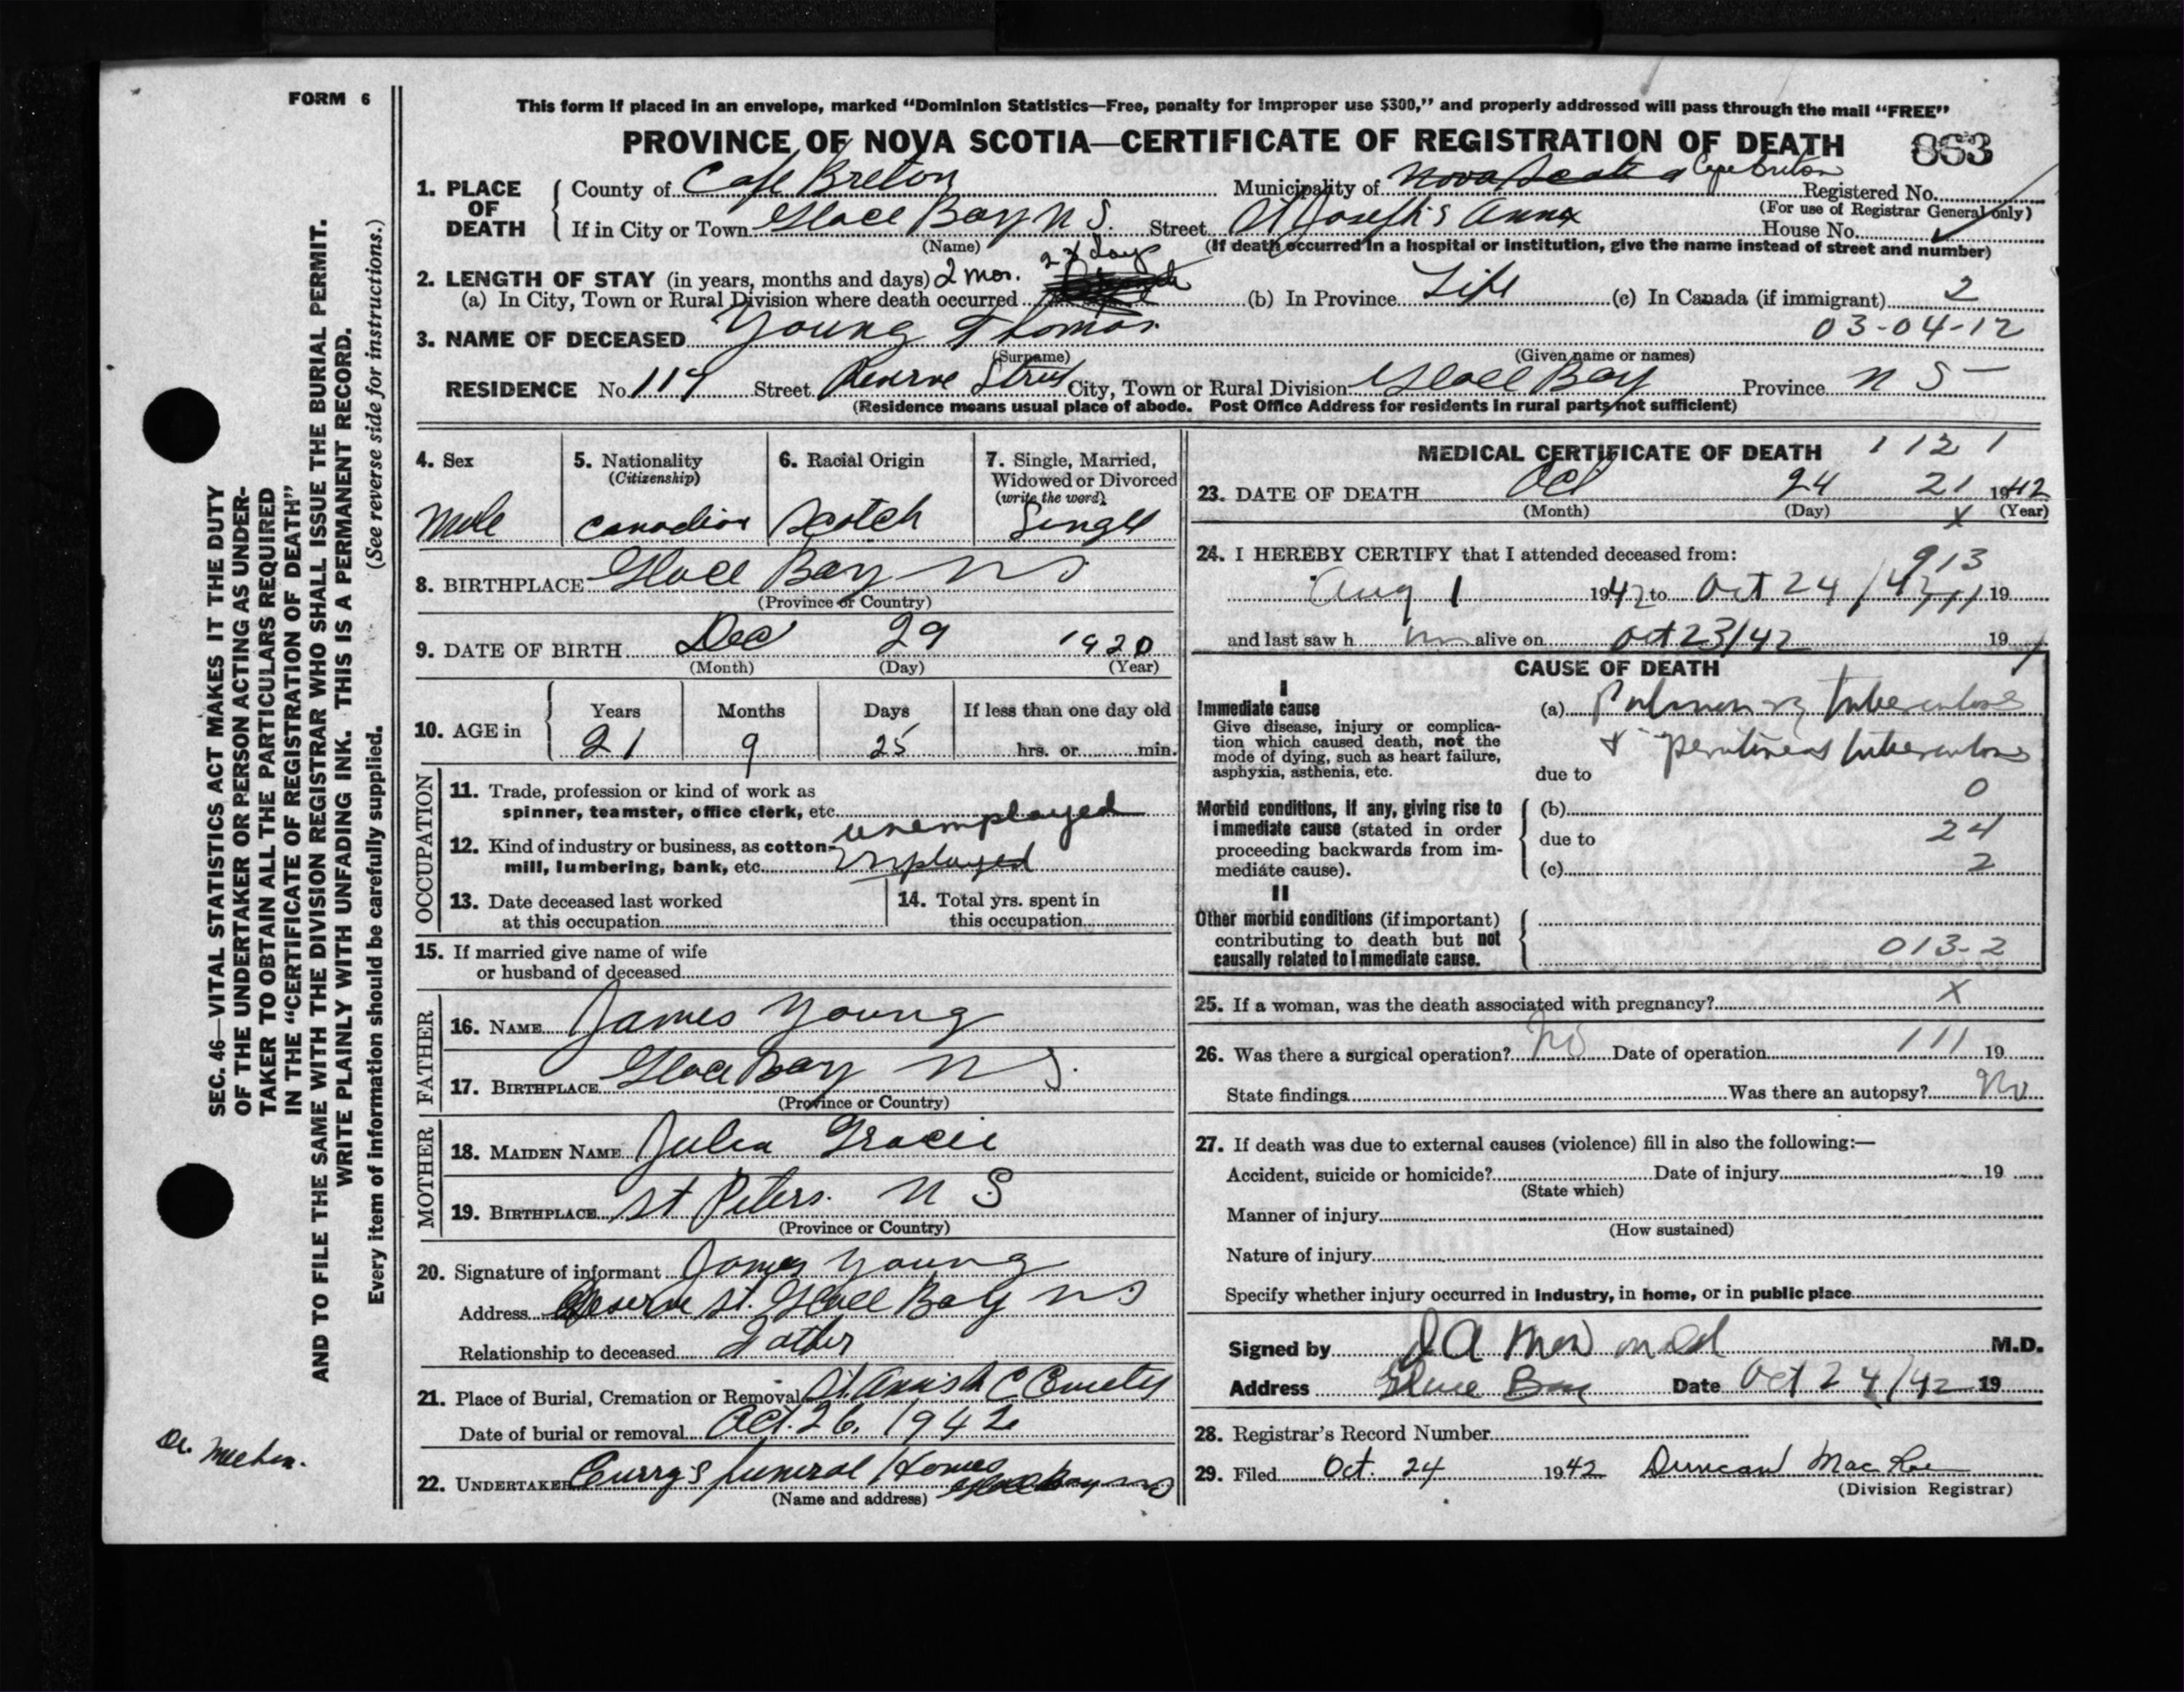 FORM 6
This form if placed in an envelope, marked “Dominion Statistics—Free, penalty for improper use $300,” and properly addressed will pass through the mail “FREE”
PROVINCE OF NOVA SCOTIA—CERTIFICATE OF REGISTRATION OF DEATH 863
1. PLACE OF DEATH County of Cape Breton Municipality of Nova Scotia Cape Breton Registered No.
(For use of Registrar General only)
If in City or Town Glace Bay N S. Street St Joseph's Annx House No.
(Name) (If death occurred in a hospital or institution, give the name instead of street and number)
2. LENGTH OF STAY (in years, months and days) 2 mos. days
(a) In City, Town or Rural Division where death occurred (b) In Province Life (c) In Canada (if immigrant) 2
03-04-12
3. NAME OF DECEASED Young Thomas
(Surname) (Given name or names)
RESIDENCE No. 117 Street Reserve Street City, Town or Rural Division Glace Bay Province N S
(Residence means usual place of abode. Post Office Address for residents in rural parts not sufficient)
4. Sex 5. Nationality (Citizenship) 6. Racial Origin 7. Single, Married, Widowed or Divorced (write the word)
Male Canadian Scotch Single
8. BIRTHPLACE Glace Bay N S
(Province or Country)
9. DATE OF BIRTH Dec 29 1920
(Month) (Day) (Year)
10. AGE in Years Months Days If less than one day old
21 9 25 hrs. or min.
OCCUPATION
11. Trade, profession or kind of work as
spinner, teamster, office clerk, etc. unemployed
12. Kind of industry or business, as cotton-
mill, lumbering, bank, etc.
13. Date deceased last worked
at this occupation
14. Total yrs. spent in
this occupation
15. If married give name of wife
or husband of deceased
FATHER
16. NAME James Young
17. BIRTHPLACE Glace Bay N S.
(Province or Country)
MOTHER
18. MAIDEN NAME Julia Gracie
19. BIRTHPLACE St Peters. N S
(Province or Country)
20. Signature of informant James Young
Address Reserve St. Glace Bay N S
Relationship to deceased Father
21. Place of Burial, Cremation or Removal St. C Cemetery
Date of burial or removal Oct. 26, 1942
22. UNDERTAKER Curry's funeral Home Glace Bay N S
(Name and address)
MEDICAL CERTIFICATE OF DEATH 1 12 1
23. DATE OF DEATH Oct 24 21 1942
(Month) (Day) X (Year)
24. I HEREBY CERTIFY that I attended deceased from: 913
Aug 1 1942 to Oct 24 /42 19
and last saw h im alive on Oct 23/42 19
CAUSE OF DEATH
I
Immediate cause
Give disease, injury or complica-
tion which caused death, not the
mode of dying, such as heart failure,
asphyxia, asthenia, etc.
(a) Pulmonary tuberculosis
+ peritoneal tuberculosis
due to
Morbid conditions, if any, giving rise to
immediate cause (stated in order
proceeding backwards from im-
mediate cause).
(b) 0
due to 24
(c) 2
II
Other morbid conditions (if important)
contributing to death but not
causally related to immediate cause.
013-2
25. If a woman, was the death associated with pregnancy? X
26. Was there a surgical operation? No Date of operation 111 19
State findings Was there an autopsy? No
27. If death was due to external causes (violence) fill in also the following:—
Accident, suicide or homicide? Date of injury 19
(State which)
Manner of injury
(How sustained)
Nature of injury
Specify whether injury occurred in industry, in home, or in public place
Signed by M.D.
Address Glace Bay Date Oct 24/42 19
28. Registrar's Record Number
29. Filed Oct. 24 1942 Duncan MacRae
(Division Registrar)
SEC. 46—VITAL STATISTICS ACT MAKES IT THE DUTY
OF THE UNDERTAKER OR PERSON ACTING AS UNDER-
TAKER TO OBTAIN ALL THE PARTICULARS REQUIRED
IN THE “CERTIFICATE OF REGISTRATION OF DEATH”
AND TO FILE THE SAME WITH THE DIVISION REGISTRAR WHO SHALL ISSUE THE BURIAL PERMIT.
WRITE PLAINLY WITH UNFADING INK. THIS IS A PERMANENT RECORD.
Every item of information should be carefully supplied. (See reverse side for instructions.)
Dr. Meehan.